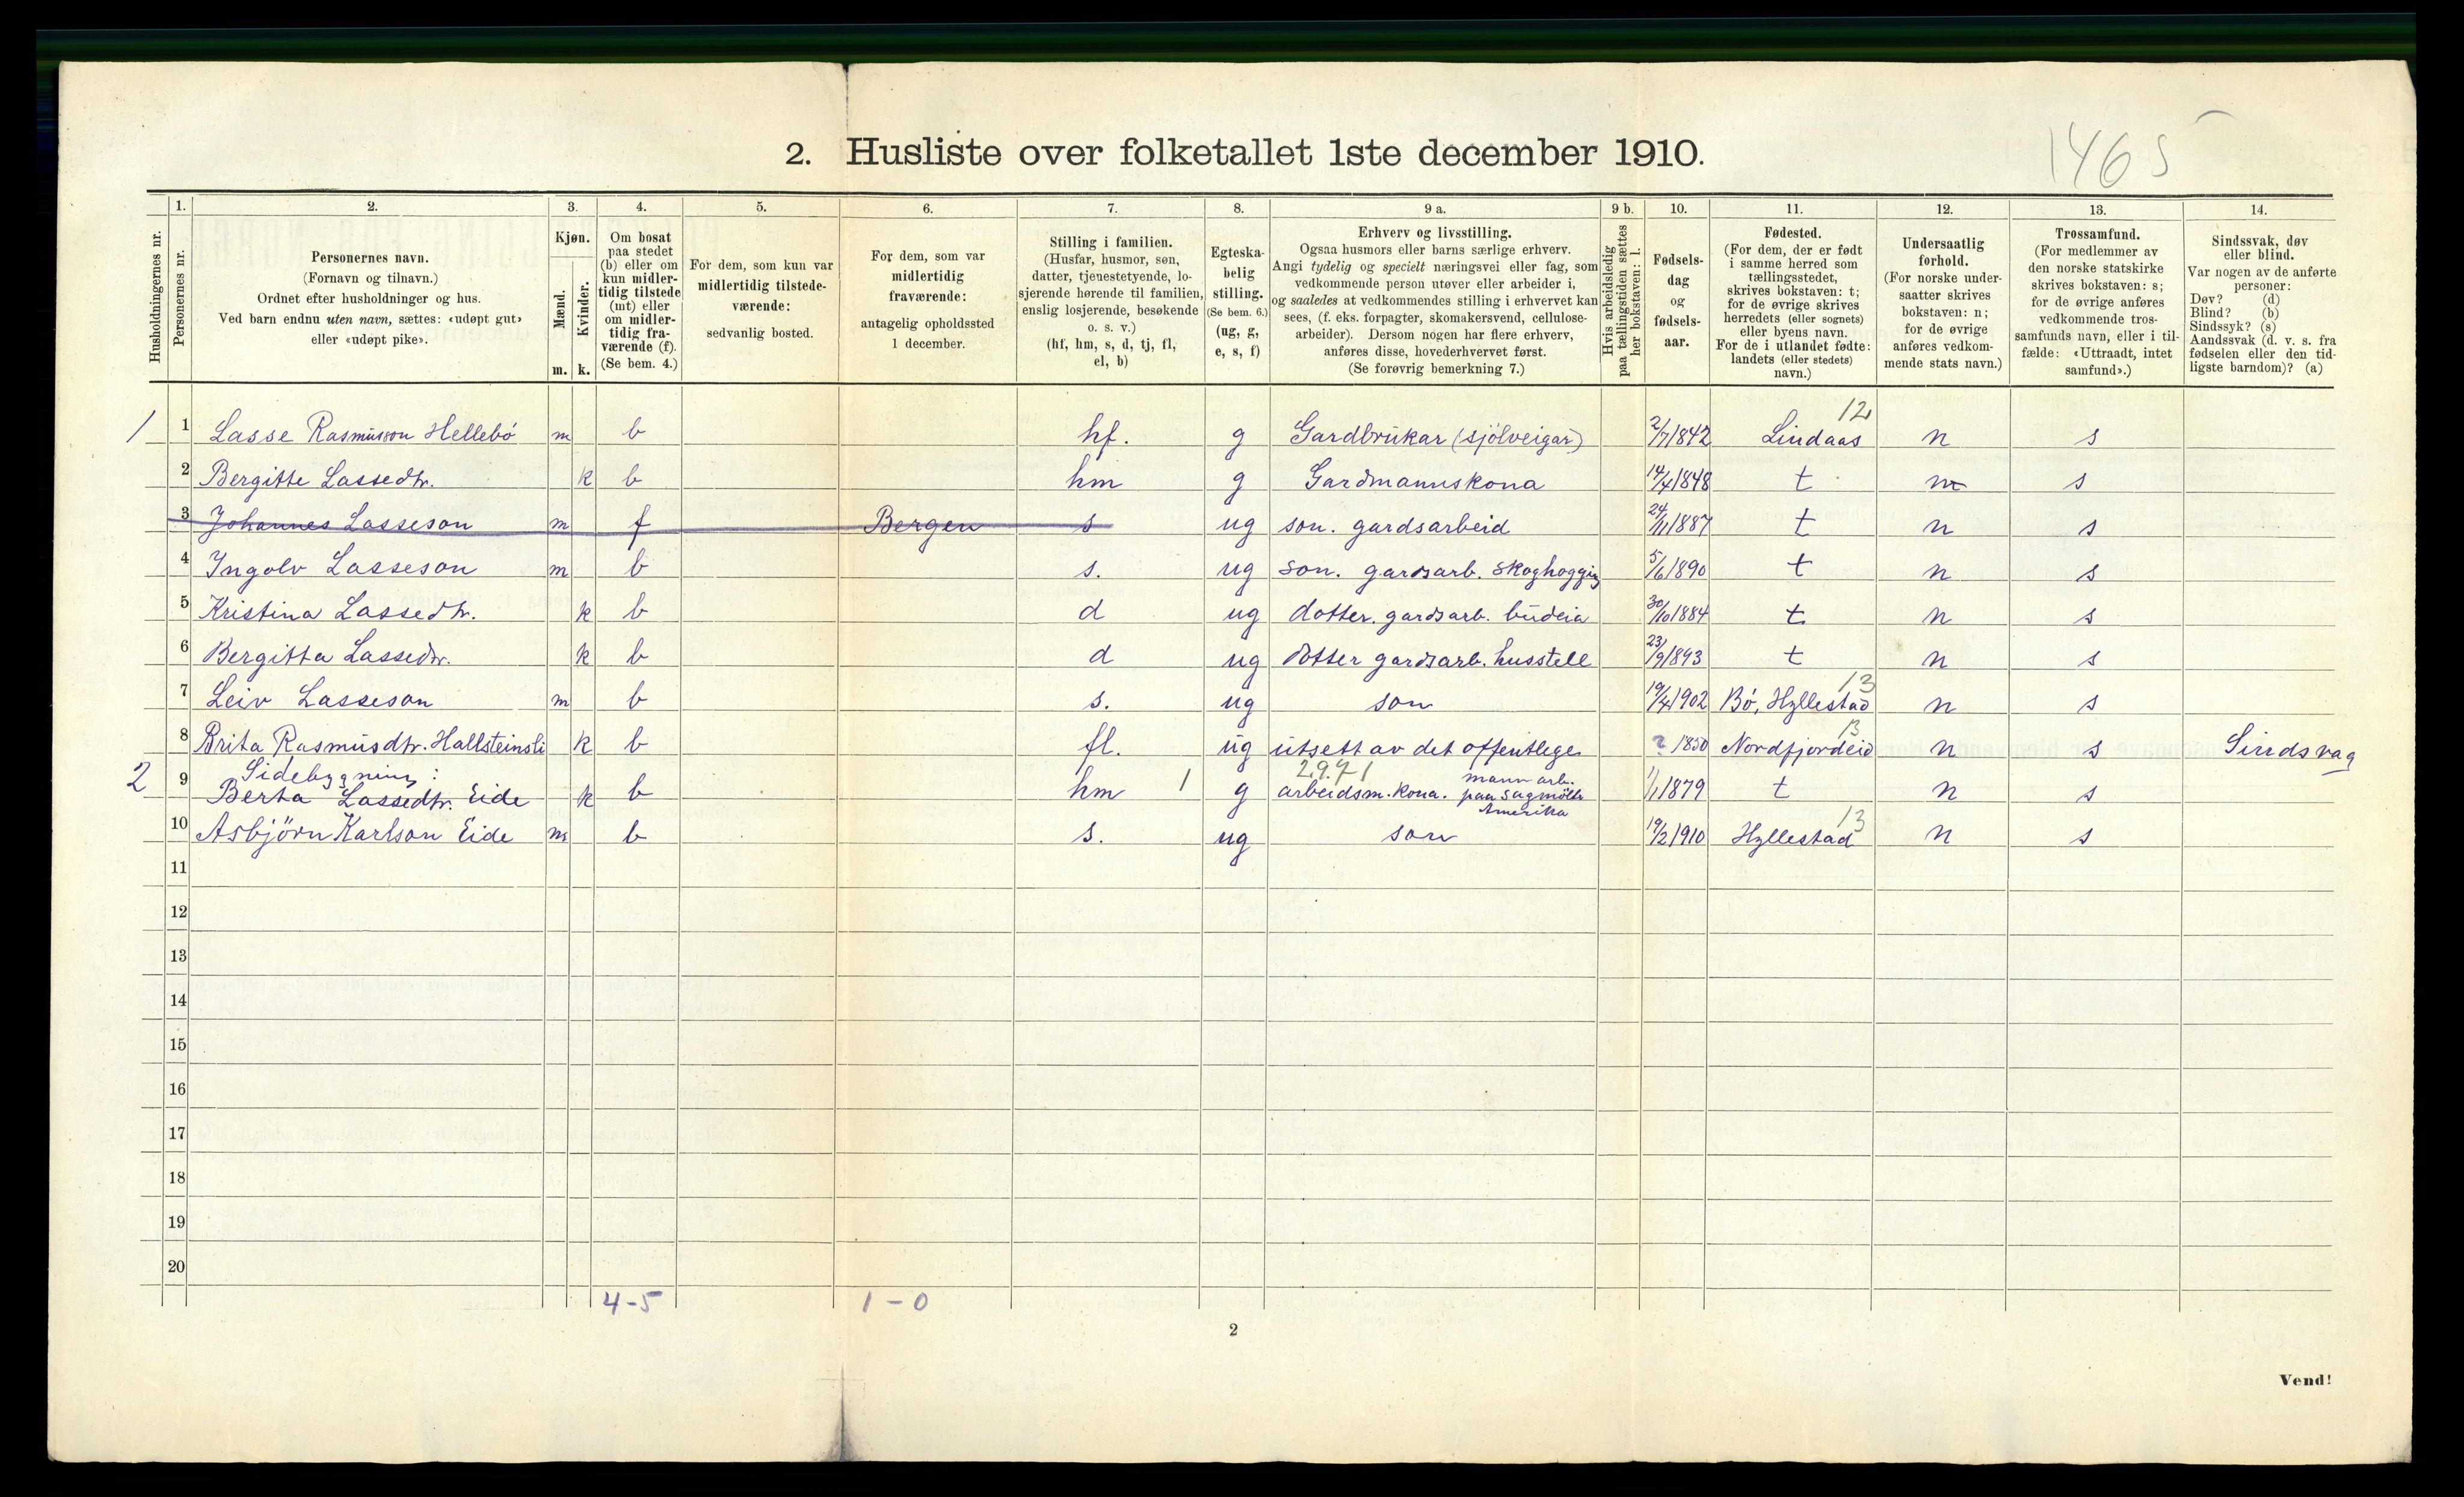 2. Husliste over folketallet 1ste december 1910.
1465
Husholdningernes nr.
1.
Personernes nr.
2.
Personernes navn.
(Fornavn og tilnavn.)
Ordnet efter husholdninger og hus.
Ved barn endnu uten navn, sættes: «udøpt gut»
eller «udøpt pike».
3.
Kjøn.
Mænd.
Kvinder.
m. k.
4.
Om bosat
paa stedet
(b) eller om
kun midler-
tidig tilstede
(mt) eller
om midler-
tidig fra-
værende (f).
(Se bem. 4.)
5.
For dem, som kun var
midlertidig tilstede-
værende:
sedvanlig bosted.
6.
For dem, som var
midlertidig
fraværende:
antagelig opholdssted
1 december.
7.
Stilling i familien.
(Husfar, husmor, søn,
datter, tjenestetyende, lo-
sjerende hørende til familien,
enslig losjerende, besøkende
o. s. v.)
(hf, hm, s, d, tj, fl,
el, b)
8.
Egteska-
belig
stilling.
(Se bem. 6.)
(ug, g,
e, s, f)
9 a.
Erhverv og livsstilling.
Ogsaa husmors eller barns særlige erhverv.
Angi tydelig og specielt næringsvei eller fag, som
vedkommende person utøver eller arbeider i,
og saaledes at vedkommendes stilling i erhvervet kan
sees, (f. eks. forpagter, skomakersvend, cellulose-
arbeider). Dersom nogen har flere erhverv,
anføres disse, hovederhvervet først.
(Se forøvrig bemerkning 7.)
9 b.
Hvis arbeidsledig
paa tællingstiden sættes
her bokstaven: l.
10.
Fødsels-
dag
og
fødsels-
aar.
11.
Fødested.
(For dem, der er født
i samme herred som
tællingsstedet,
skrives bokstaven: t;
for de øvrige skrives
herredets (eller sognets)
eller byens navn.
For de i utlandet fødte:
landets (eller stedets)
navn.)
12.
Undersaatlig
forhold.
(For norske under-
saatter skrives
bokstaven: n;
for de øvrige
anføres vedkom-
mende stats navn.)
13.
Trossamfund.
(For medlemmer av
den norske statskirke
skrives bokstaven: s;
for de øvrige anføres
vedkommende tros-
samfunds navn, eller i til-
fælde: «Uttraadt, intet
samfund».)
14.
Sindssvak, døv
eller blind.
Var nogen av de anførte
personer:
Døv? (d)
Blind? (b)
Sindssyk? (s)
Aandssvak (d. v. s. fra
fødselen eller den tid-
ligste barndom)? (a)
12
1 1 Lasse Rasmusson Hellebö m b hf. g Gardbrukar (sjölveigar) 2/7 1842 Lindaas n s
2 Bergitte Lassedtr. k b hm g Gardmannskona 14/4 1848 t n s
3 Johannes Lasseson m f Bergen s ug son. gardsarbeid 24/11 1887 t n s
4 Ingolv Lasseson m b s. ug son. gardsarb. skoghogging 5/6 1890 t n s
5 Kristina Lassedtr. k b d ug dotter. gardsarb. budeia 30/10 1884 t n s
6 Bergitta Lassedtr. k b d ug dotter gardsarb. husstell 23/9 1893 t n s
13
7 Leiv Lasseson m b s. ug son 19/4 1902 Bö, Hyllestad n s
13
8 Brita Rasmusdtr. Hallsteinsli k b fl. ug utsett av det offentlege ? 1850 Nordfjordeid n s Sindsvag
Sidebygning: 2971 mann arb.
2 9 Berta Lassedtr. Eide k b hm 1 g arbeidsm. kona. paa sagmölle 1/1 1879 t n s
Amerika
13
10 Asbjörn Karlson Eide m b s. ug son 19/2 1910 Hyllestad n s
11
12
13
14
15
16
17
18
19
20
4-5 1-0
2
Vend!